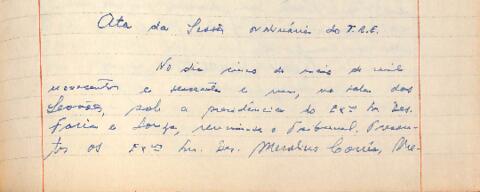 Ata da Sessão ordinária do T.R.E.
No dia cinco de maio de mil
novecentos e sessenta e um, na sala das
Sessões, sob a presidência do Exmo Sr. Des.
Faria e Souza, reuniu-se o Tribunal. Presen-
tes os Exmos Srs. Des. Merolino Corrêa,